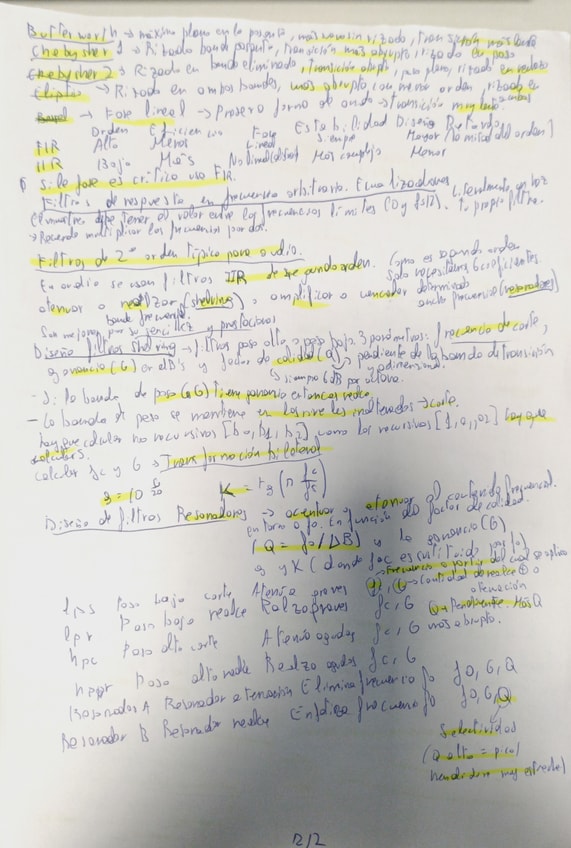 Butterworth → máximo plano en la pasante, más suave sin rizado, transición más lenta
Chebysher 1 → Rizado banda pasante, transición más abrupta, rizado en paso
Chebysher 2 → Rizado en banda eliminada, transición abrupta, paso plano, rizado en rechazo
Elíptico → Rizado en ambas bandas, más abrupto con menor orden, rizado en ambas
Bessel → Fase lineal → Preserva forma de onda → transición muy lenta
Orden Eficiencia Fase Estabilidad Diseño Retardo
FIR Alto Menos Lineal Siempre Mayor (la mitad del orden)
IIR Bajo Más No lineal Más complejo Menor
Si la fase es crítica uso FIR.
Filtros de respuesta en frecuencia arbitraria. Ecualizadores
El muestreo debe tener el valor entre las frecuencias límites (0 y fs/2). Literalmente, en haz tu propio filtro.
→ Recuerda multiplicar las frecuencias por dos.
Filtros de 2º orden típico para audio.
En audio se usan filtros IIR de segundo orden. Como es segundo orden solo necesitamos 6 coeficientes
atenuar o realzar (shelving) o amplificar o cancelar determinada
banda frecuencia. ancho frecuencia (resonadores)
Son mejores por su sencillez y prestaciones
Diseño filtros Shelving → filtros paso alto o paso bajo. 3 parámetros: frecuencia de corte,
ganancia (G) en dB's y factor de calidad (Q) → pendiente de la banda de transición
→ siempre 6dB por octava. adimensional.
- Si la banda de paso (G) tiene ganancia entonces realce.
- La banda de paso se mantiene en los niveles inalterados → corte.
hay que calcular no recursivos [b0, b1, b2] como los recursivos [1, a1, a2] hay que calcularlos.
calcular fc y G → Transformación bilateral
g = 10^(G/20) K = tg (π fc/fs)
Diseño de filtros Resonadores → acentuar o atenuar el contenido frecuencial
en torno a f0. En función del factor de calidad.
(Q = f0/ΔB) y la ganancia (G)
g y K (donde fc es sustituido por f0)
→ frecuencia a partir del cual se aplica
lps Paso bajo corte Atenúa graves fc, G → Control de realce ⊕ o atenuación
lpr Paso bajo realce Realza graves fc, G Q → Pendiente. Más Q más abrupto.
hpc Paso alto corte Atenúa agudos fc, G
hppr Paso alto realce Realza agudos fc, G
Resonador A Resonador atenuación Elimina frecuencia f0 f0, G, Q
Resonador B Resonador realce Enfatiza frecuencia f0 f0, G, Q
Selectividad
(Q alto = pico/
hendidura muy estrecha)
12/2